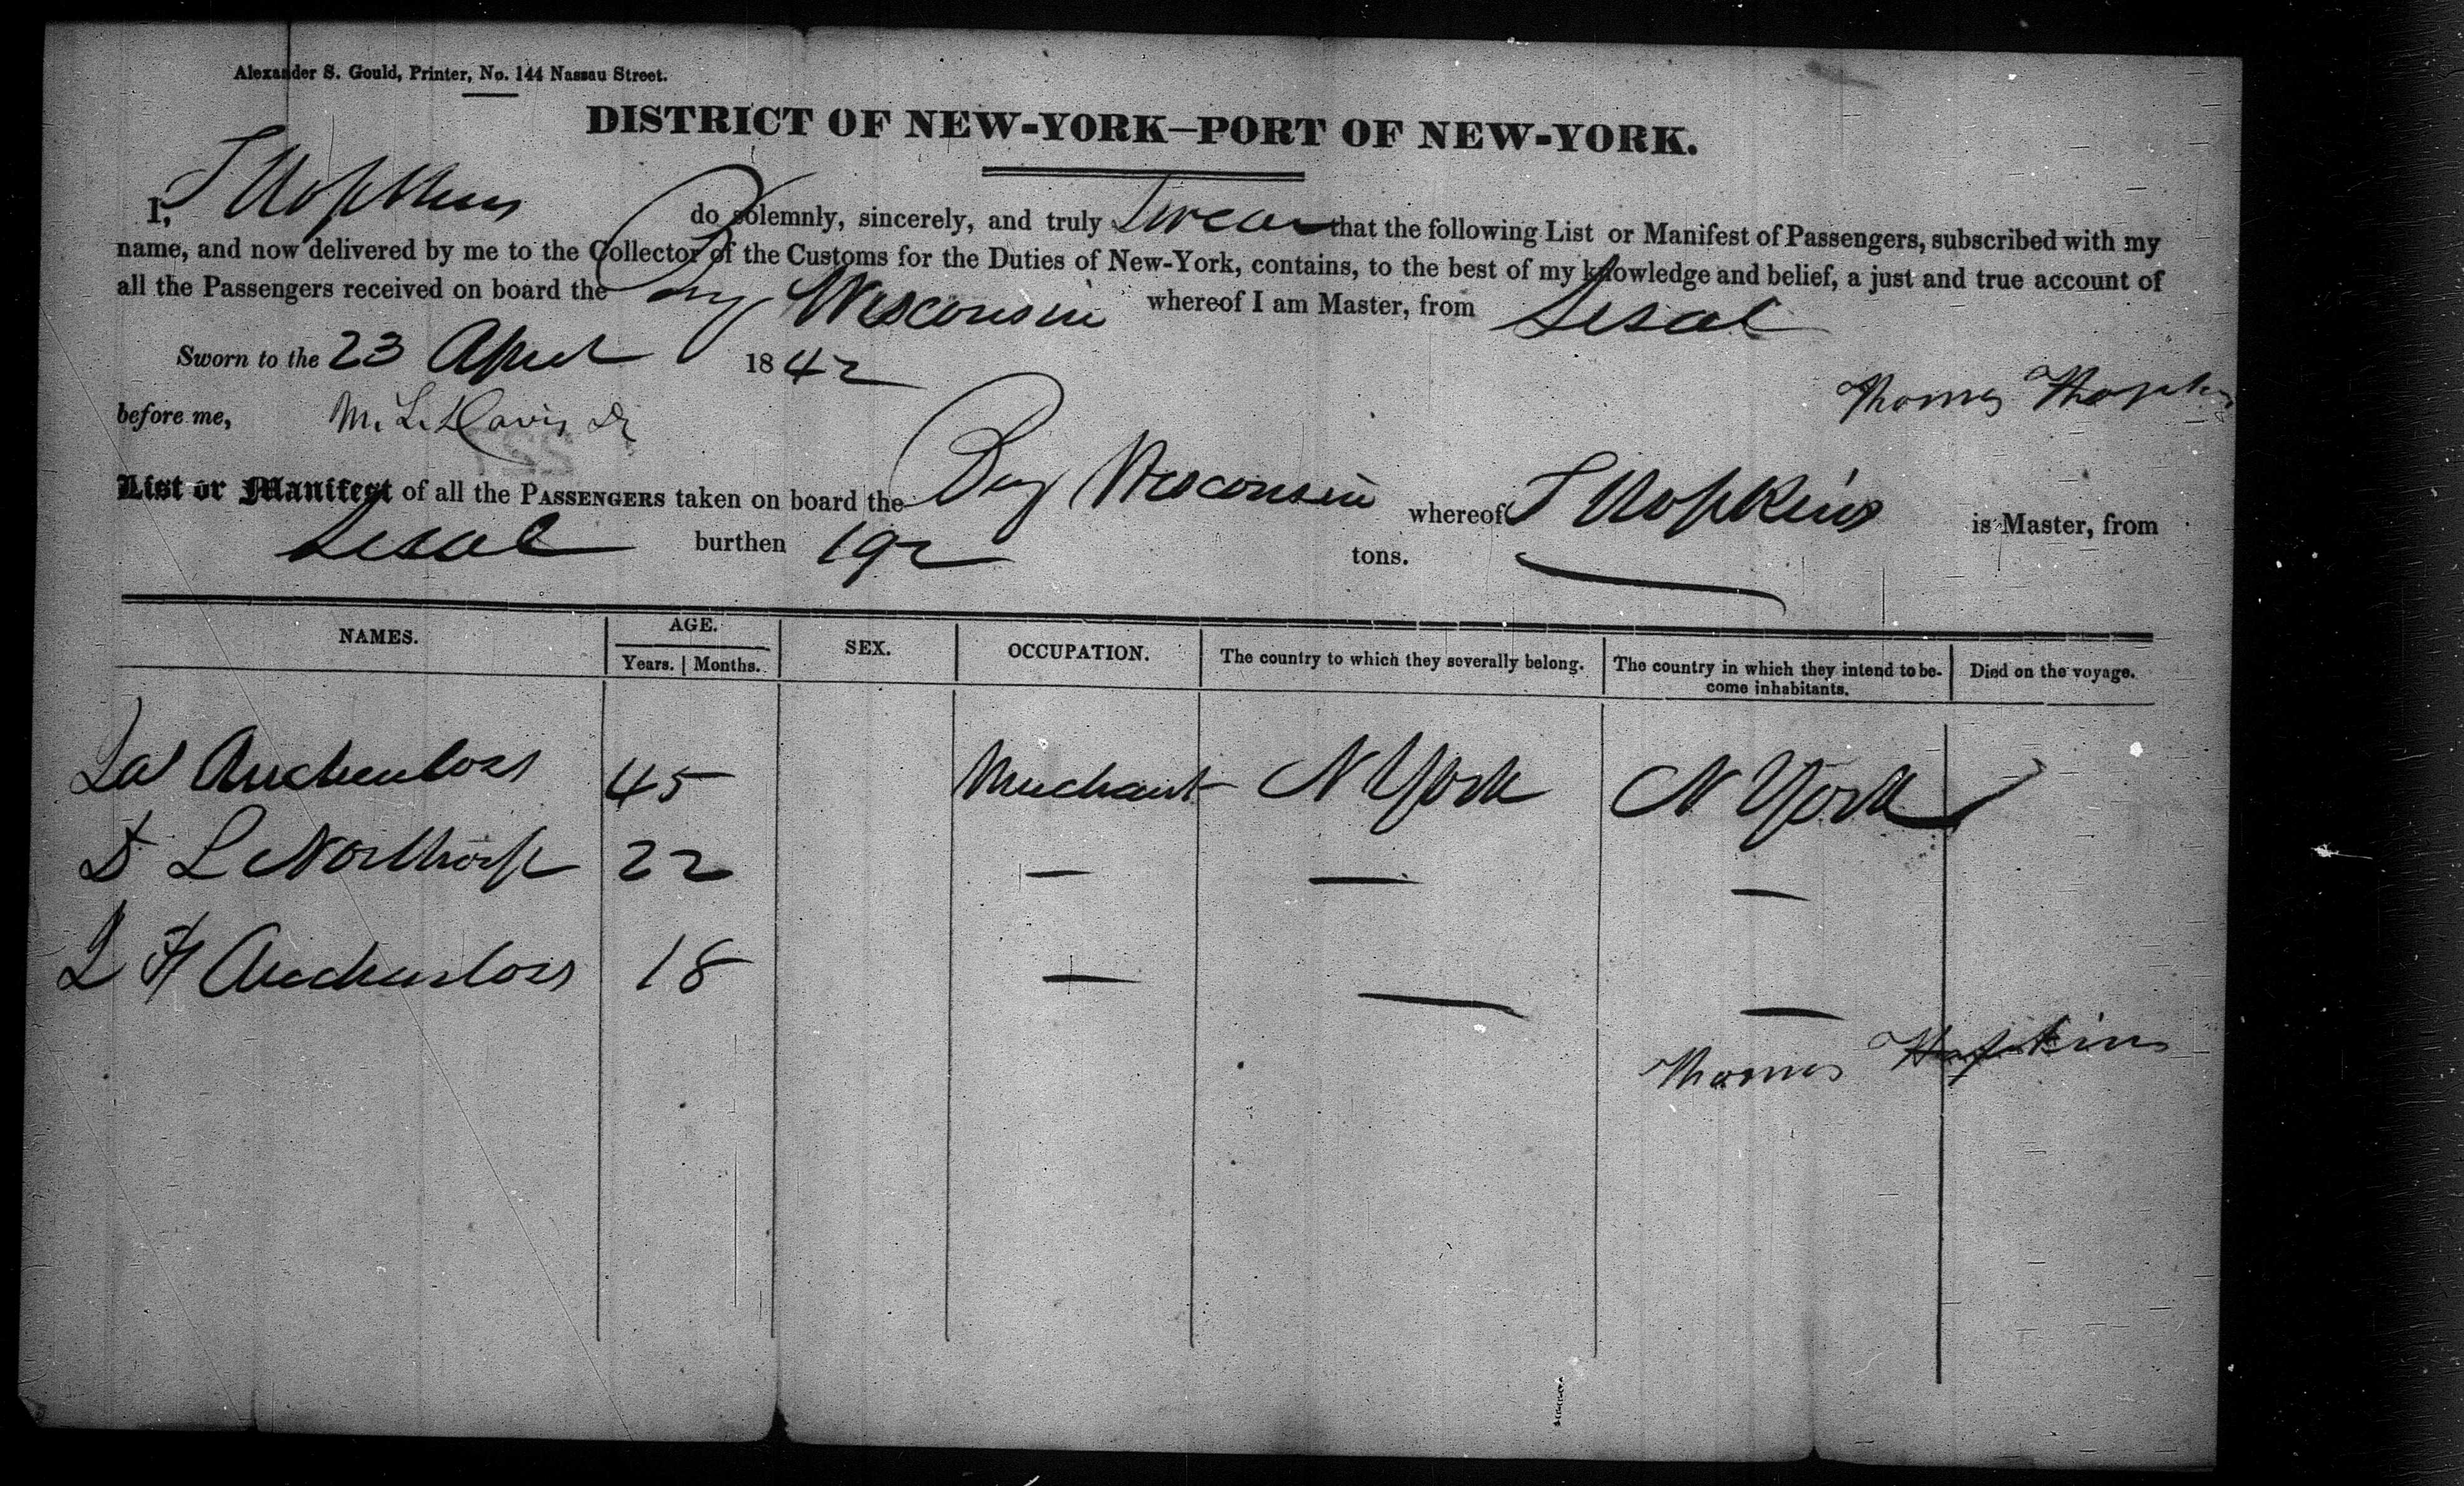 Alexander S. Gould, Printer, No. 144 Nassau Street.
DISTRICT OF NEW-YORK—PORT OF NEW-YORK.
I, T Hopkins do solemnly, sincerely, and truly Swear that the following List or Manifest of Passengers, subscribed with my
name, and now delivered by me to the Collector of the Customs for the Duties of New-York, contains, to the best of my knowledge and belief, a just and true account of
all the Passengers received on board the Brig Wisconsin whereof I am Master, from Sisal
Sworn to the 23 April 1842
Thomas Hopkins
before me, M. L. Davis
List or Manifest of all the PASSENGERS taken on board the Brig Wisconsin whereof T Hopkins is Master, from
Sisal burthen 192 tons.
NAMES. AGE. SEX. OCCUPATION. The country to which they severally belong. The country in which they intend to be- Died on the voyage.
Years. Months. come inhabitants.
Auchincloss 45 Merchant N York N York
L Northrop 22 — — —
Auchincloss 18 — — —
Thomas Hopkins